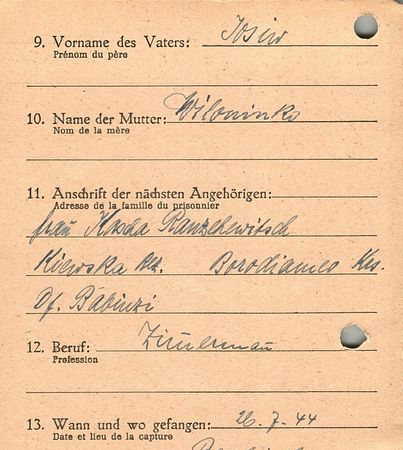 9. Vorname des Vaters: Josiw
Prénom du père
10. Name der Mutter: Wiloninko
Nom de la mère
11. Anschrift der nächsten Angehörigen:
Adresse de la famille du prisonnier
frau Ranzchewitsch
Kiewska Borodianeo Krs.
Df. Babinzi
12. Beruf: Zimerman
Profession
13. Wann und wo gefangen: 26.7.44
Date et lieu de la capture